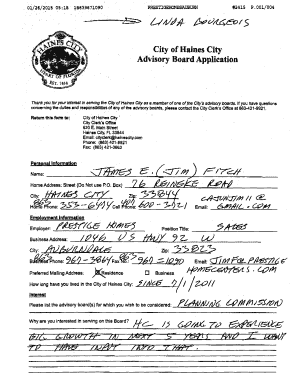 01/26/2015 05:18 18636671090 PRESTIGEHOMESAUBURN #2415 P.001/004
LINDA BOURGEOIS
HAINES CITY
HEART OF FLORIDA
City of Haines City
Advisory Board Application
Thank you for your interest in serving the City of Haines City as a member of one of the City's advisory boards. If you have questions
concerning the duties and responsibilities of any of the advisory boards, please contact the City Clerk's Office at 863-421-9921.
Return this form to: City of Haines City
City Clerk's Office
620 E. Main Street
Haines City, FL 33844
Email: cityclerk@hainescity.com
Phone: (863) 421-9921
Personal Information
Name: JAMES E. (JIM) FITCH
Home Address: Street (Do Not Use P.O. Box) 76 REINEKE ROAD
City HAINES CITY Zip 33844 CAJUNJIM11@
Home Phone: 353-6494 Cell Phone: 600-3721 Email: GMAIL.COM
Employment Information
Employer: PRESTIGE HOMES Position Title: SALES
Business Address: 1046 US HWY 92 W
City: AUBURNDALE Zip 33823
Business Phone: 967-3864 Fax: 967-1090 Email: JIMF@PRESTIGE
HOMECENTERS.COM
Preferred Mailing Address: Residence Business
How long have you lived in the City of Haines City: SINCE 7/1/2011
Interest
Please list the advisory board(s) for which you wish to be considered: PLANNING COMMISSION
Why are you interested in serving on this Board? HC IS GOING TO EXPERIENCE
BIG GROWTH IN NEXT 5 YEARS AND I WANT
TO HAVE INPUT INTO THAT.